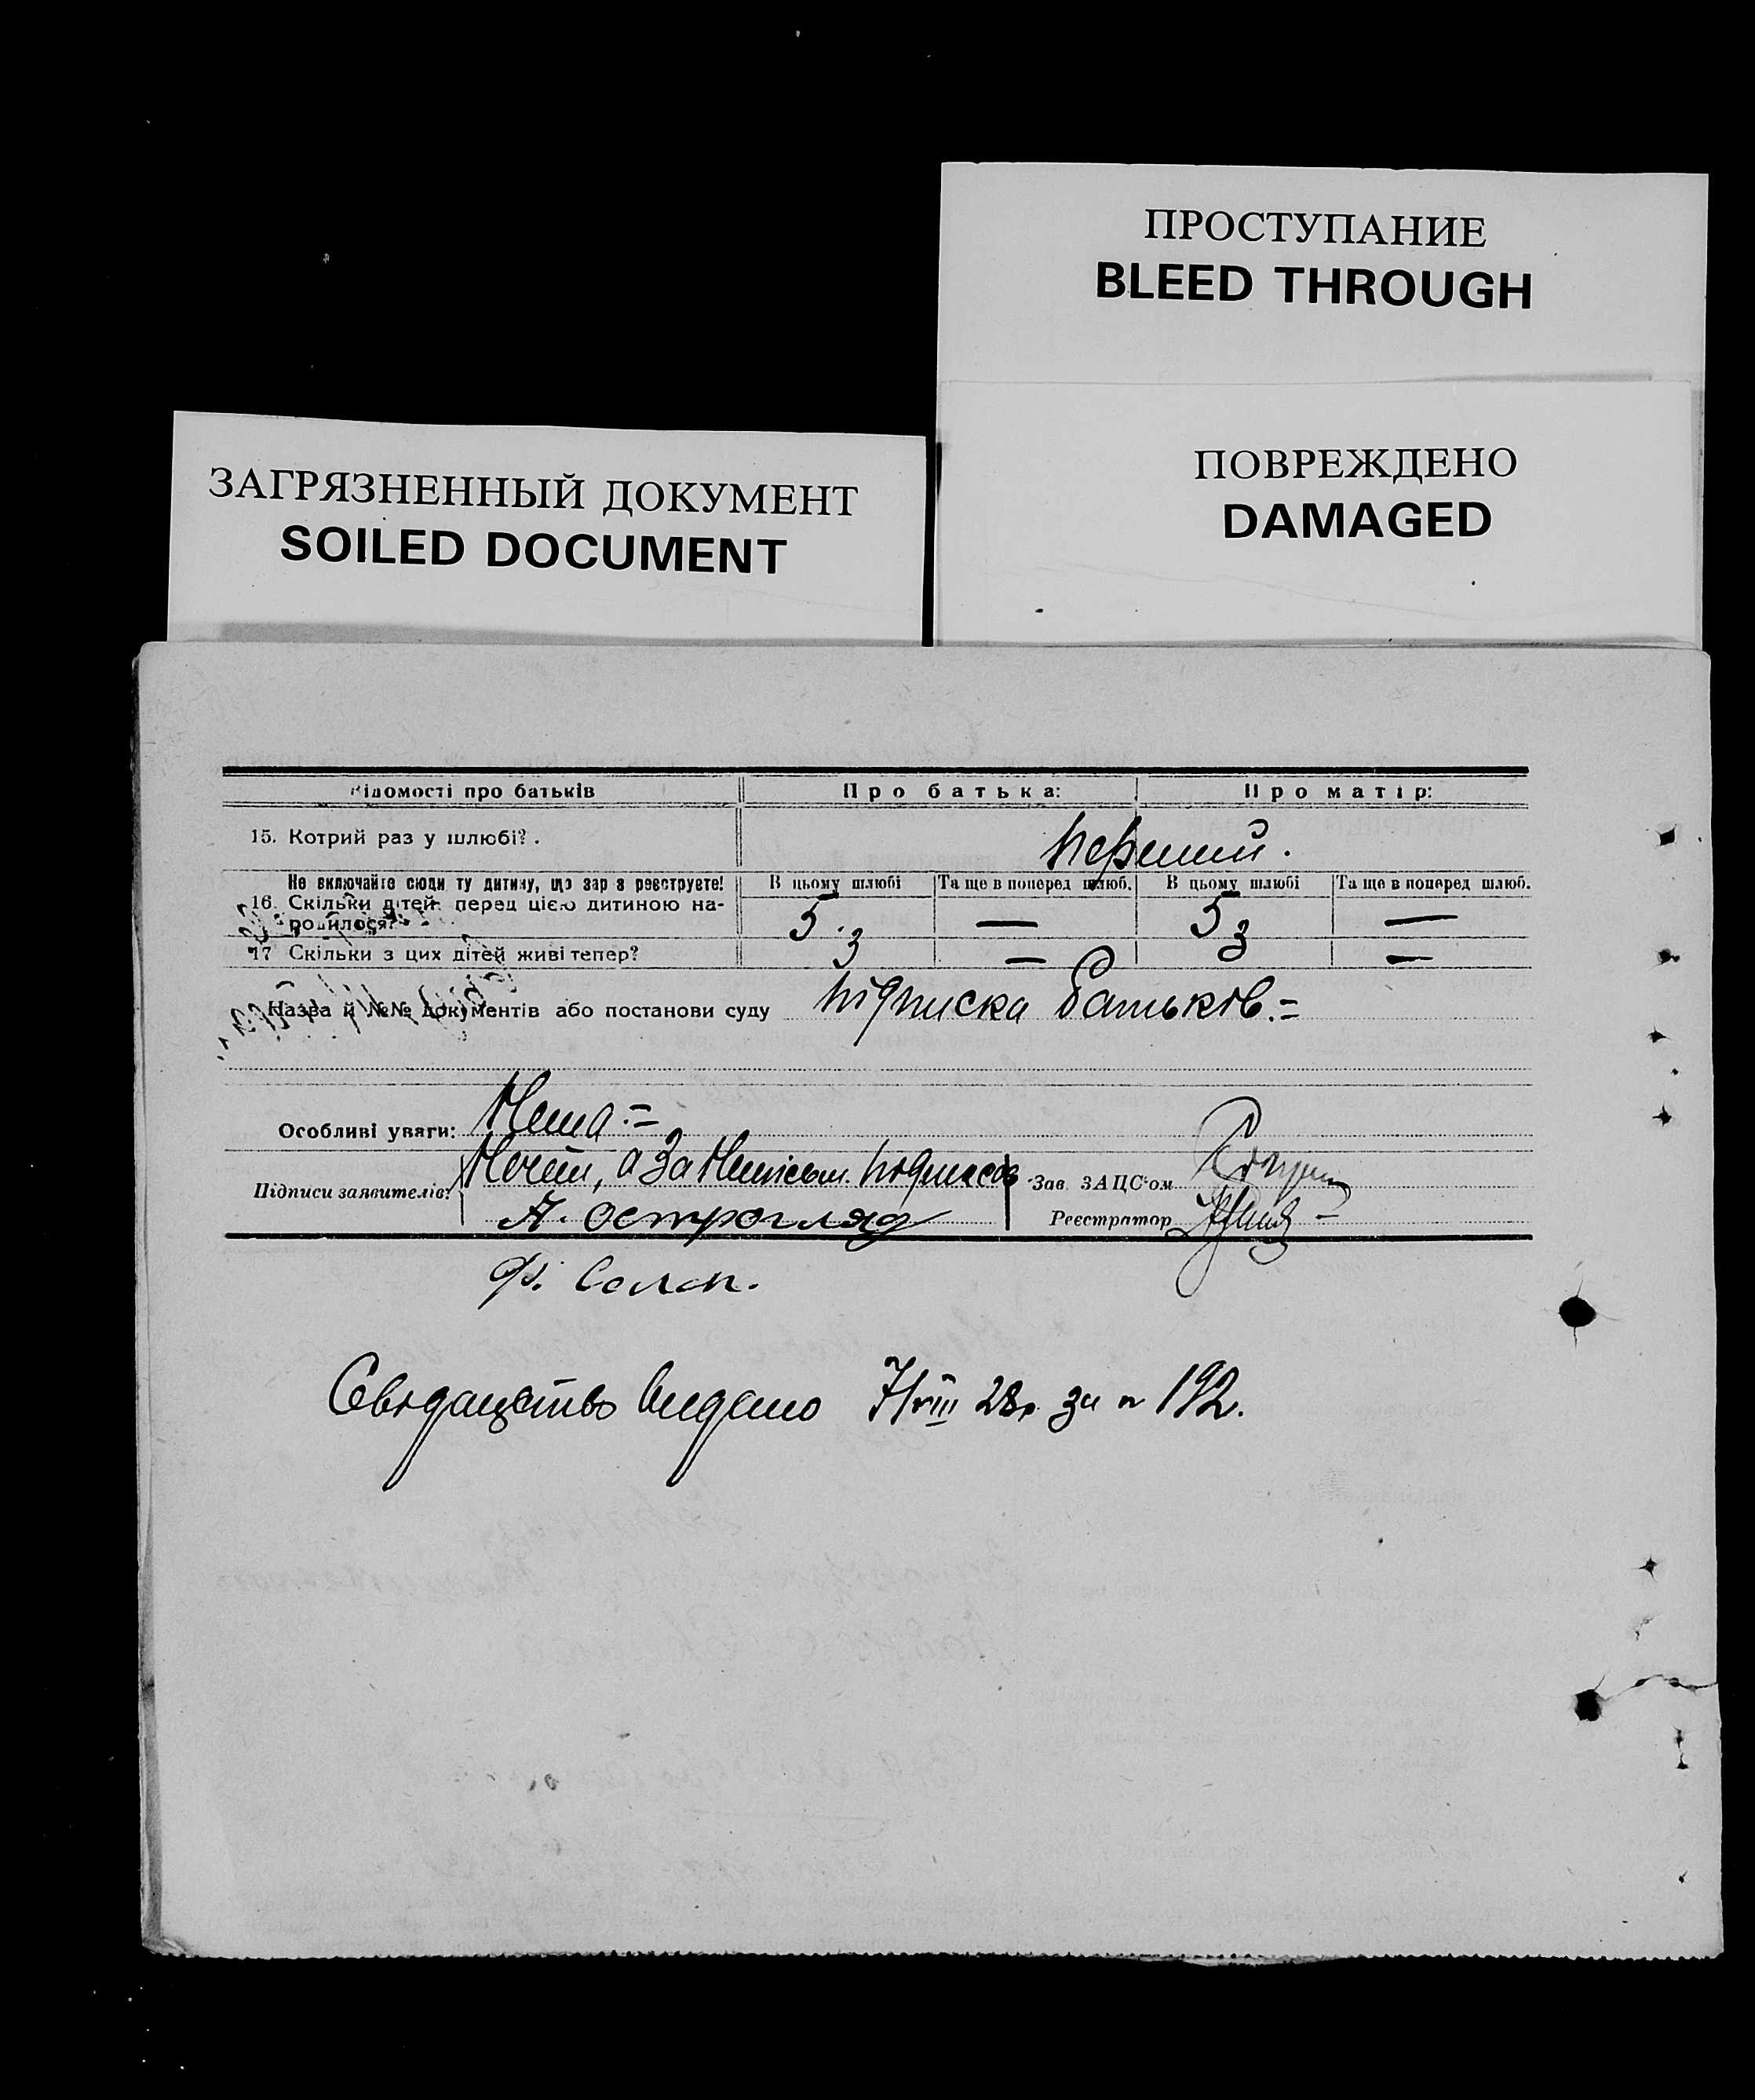 ПРОСТУПАНИЕ
BLEED THROUGH
ПОВРЕЖДЕНО
DAMAGED
ЗАГРЯЗНЕННЫЙ ДОКУМЕНТ
SOILED DOCUMENT
Відомості про батьків Про батька: Про матір:
15. Котрий раз у шлюбі?. перший.
Не включайте сюди ту дитину, що зараз реєструєте! В цьому шлюбі Та ще в поперед шлюб. В цьому шлюбі Та ще в поперед шлюб.
16. Скільки дітей перед цією дитиною на-
родилося? 5. — 5 —
17 Скільки з цих дітей живі тепер? 3 — 3 —
Назва й №№ документів або постанови суду підписка батьків.=
Особливі уваги: Нема.=
Підписи заявителів: а за
А. Острогляд
Зав. ЗАЦС'ом
Реєстратор
Ф.
Свідацтво видано 7/VIII 28р. за № 192.